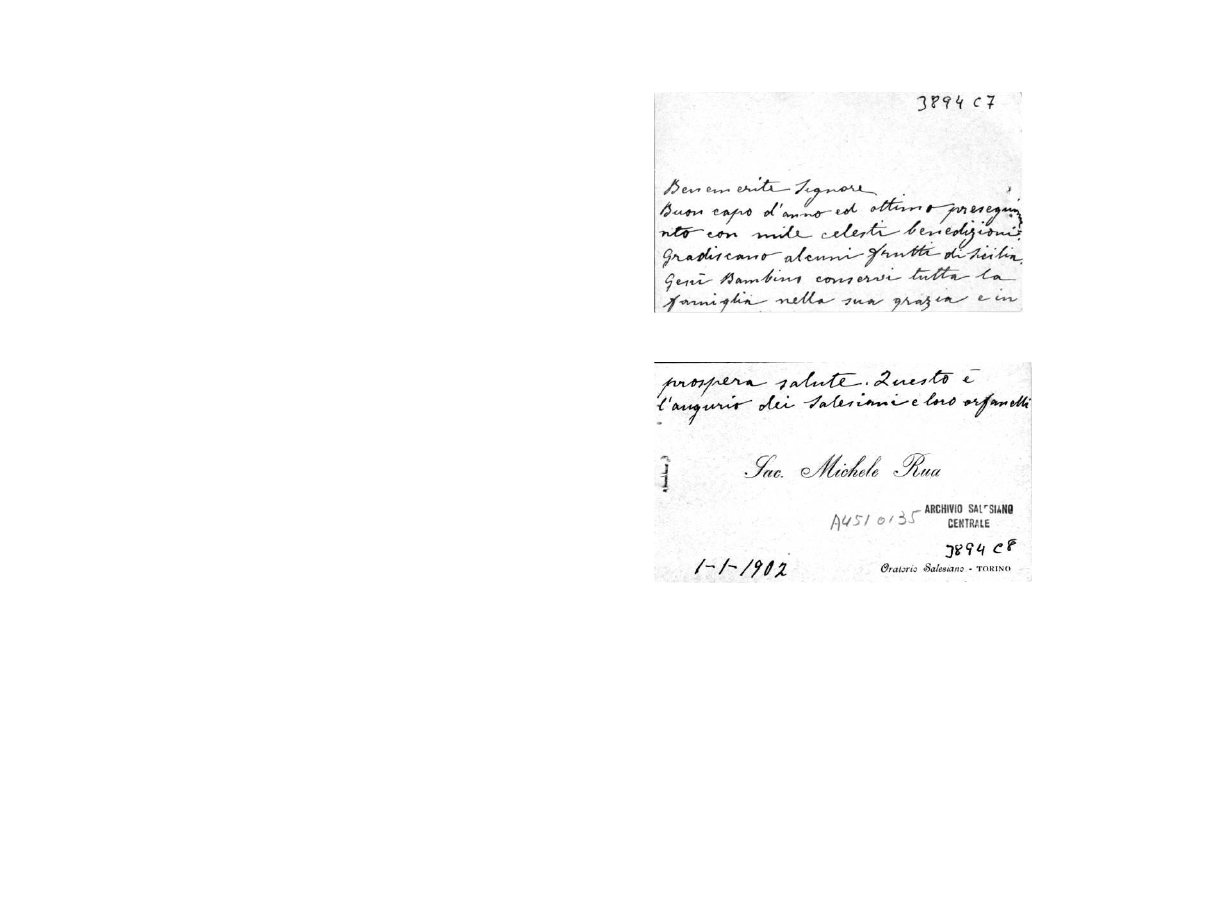 3894 C 7
Benemerite Signore
Buon capo d'anno ed ottimo
nto con mile celesti benedizioni.
Gradiscano alcuni frutti di Sicilia.
Gesù Bambino conservi tutta la
famiglia nella sua grazia e in
prospera salute. Questo è
l'augurio dei Salesiani e loro orfanelli
Sac. Michele Rua
A4510135
ARCHIVIO SALESIANO
CENTRALE
3894 C8
1-1-1902
Oratorio Salesiano - TORINO